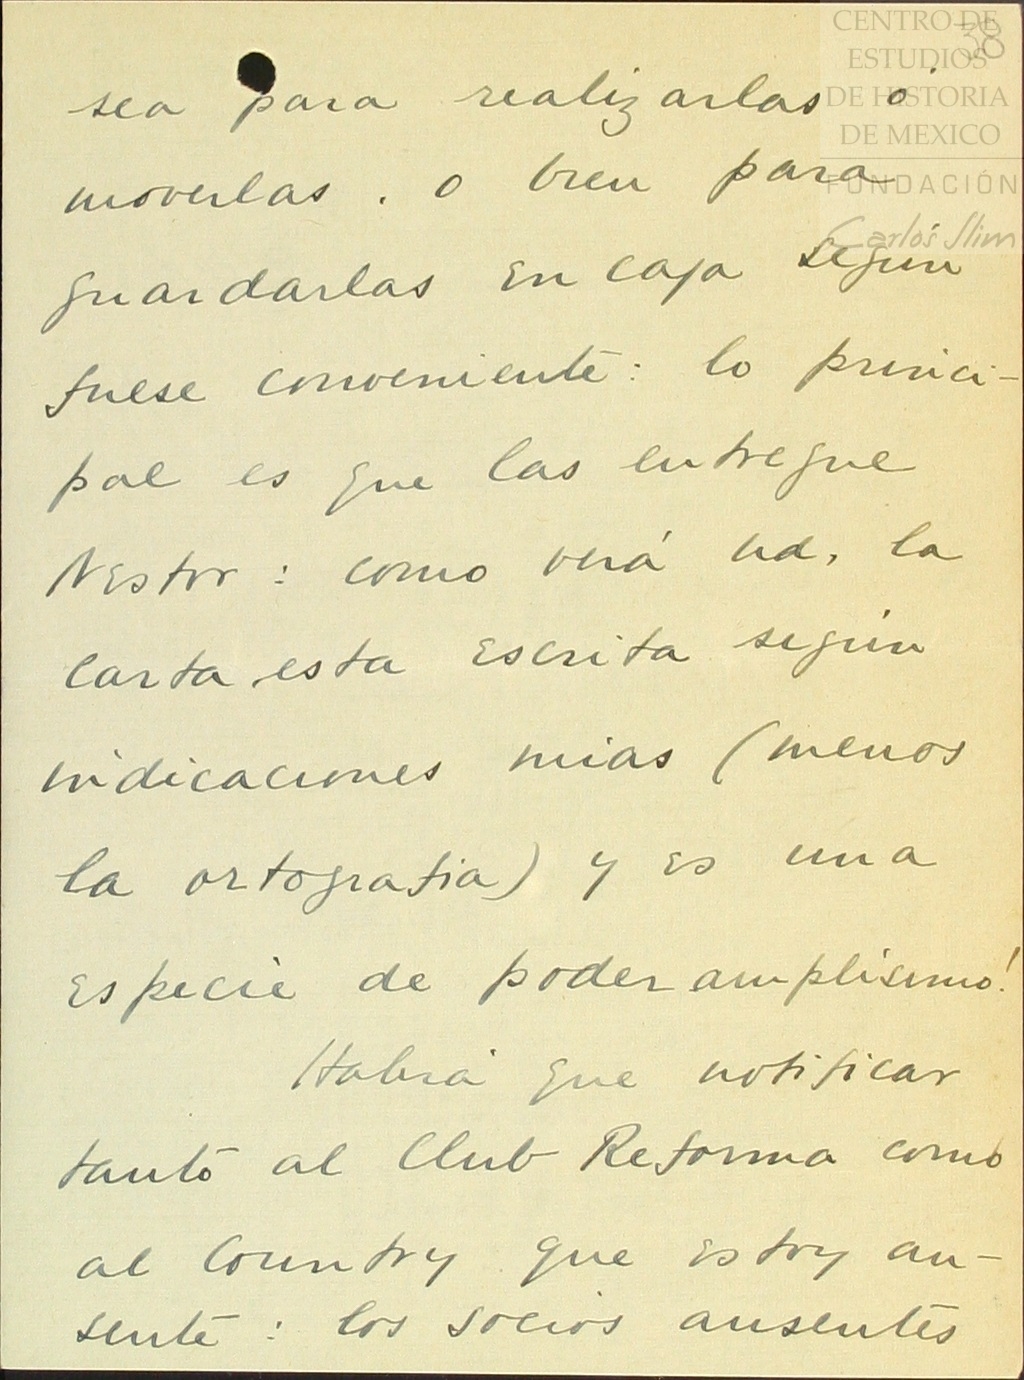 CENTRO DE
ESTUDIOS
DE HISTORIA
DE MEXICO
FUNDACIÓN
Carlos Slim
38
sea para realizarlas ó
moverlas. o bien para
guardarlas en caja según
fuese conveniente: lo princi-
pal es que las entregue
Nestor: como verá ud. la
carta esta escrita según
indicaciones mias (menos
la ortografia) y es una
especie de poder amplisimo!
Habrá que notificar
tanto al Club Reforma como
al Country que estoy au-
sente: los socios ausentes